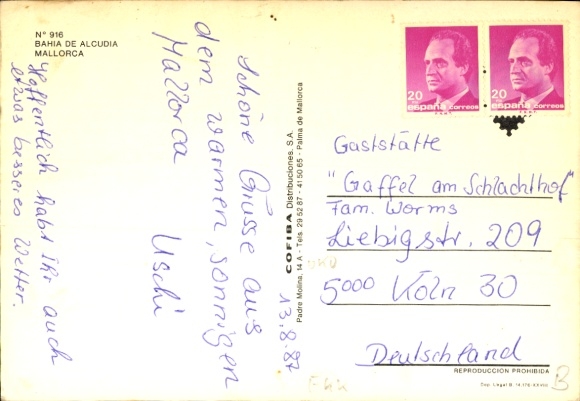 Nº 916
BAHIA DE ALCUDIA
MALLORCA
Schöne Grüsse aus
dem warmen, sonnigen
Mallorca
Uschi
Hoffentlich habt ihr auch
etwas besseres Wetter.
13.8.87
COFIBA Distribuciones, S.A.
Padre Molina, 14 A - Tels 29 52 87 - 41 50 65 - Palma de Mallorca
20
españa correos
20
españa correos
Gaststätte
"Gaffel am Schlachthof"
Fam. Worms
Liebigstr. 209
5000 Köln 30
Deutschland
REPRODUCCION PROHIBIDA
B